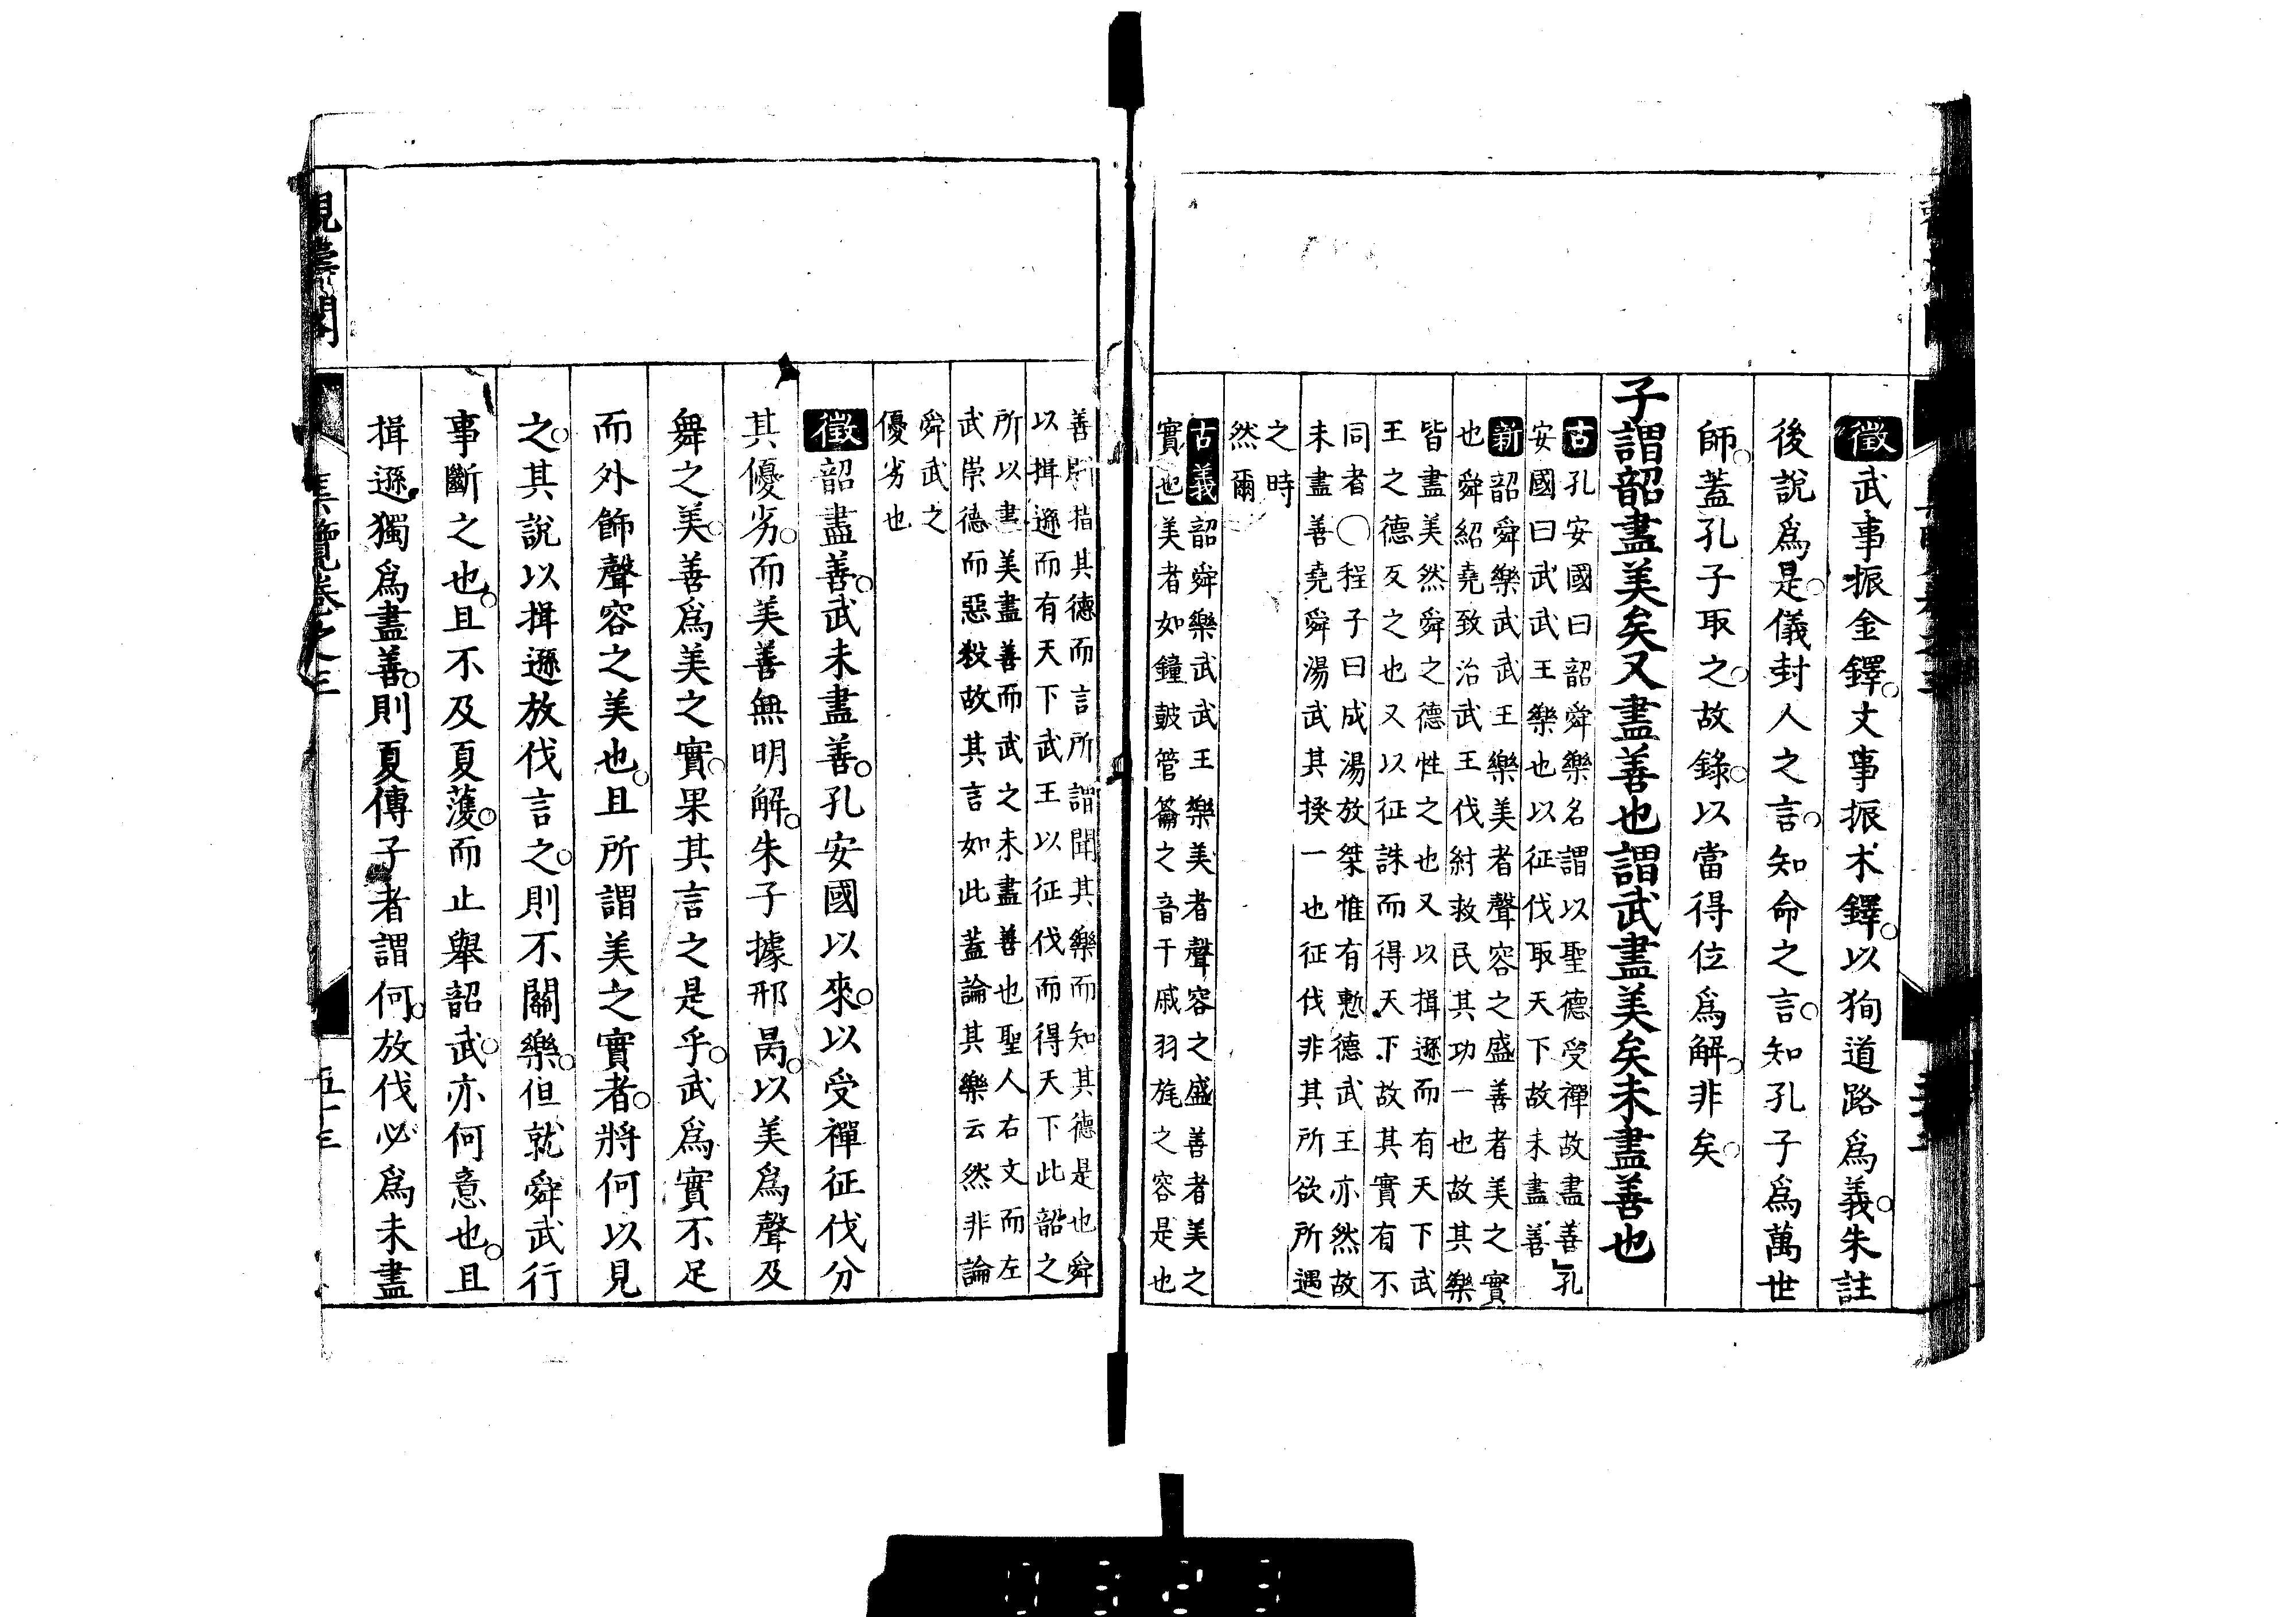 徵武事振金鐸文事振木鐸以狥道路爲義朱註
後說爲是儀封人之言知命之言知孔子爲萬世
師蓋孔子取之故錄以當得位爲解非矣
子謂韶盡美矣又盡善也謂武盡美矣未盡善也
古孔安國曰韶舜樂名謂以聖德受禪故盡善孔
安國曰武武王樂也以征伐取天下故未盡善
新韶舜樂武武王樂美者聲容之盛善者美之實
也舜紹堯致治武王伐紂救民其功一也故其樂
皆盡美然舜之德性之也又以揖遜而有天下武
王之德反之也又以征誅而得天下故其實有不
同者○程子曰成湯放桀惟有慙德武王亦然故
未盡善堯舜湯武其揆一也征伐非其所欲所遇
之時
然爾
古義韶舜樂武武王樂美者聲容之盛善者美之
實也美者如鐘鼓管籥之音干戚羽旄之容是也
善則指其德而言所謂聞其樂而知其德是也舜
以揖遜而有天下武王以征伐而得天下此韶之
所以盡美盡善而武之未盡善也聖人右文而左
武崇德而惡殺故其言如此蓋論其樂云然非論
舜武之
優劣也
徵韶盡善武未盡善孔安國以來以受禪征伐分
其優劣而美善無明解朱子據邢昺以美爲聲及
舞之美善爲美之實果其言之是乎武爲實不足
而外飾聲容之美也且所謂美之實者將何以見
之其說以揖遜放伐言之則不關樂但就舜武行
事斷之也且不及夏濩而止舉韶武亦何意也且
揖遜獨爲盡善則夏傳子者謂何放伐必爲未盡
覽卷之三
0323